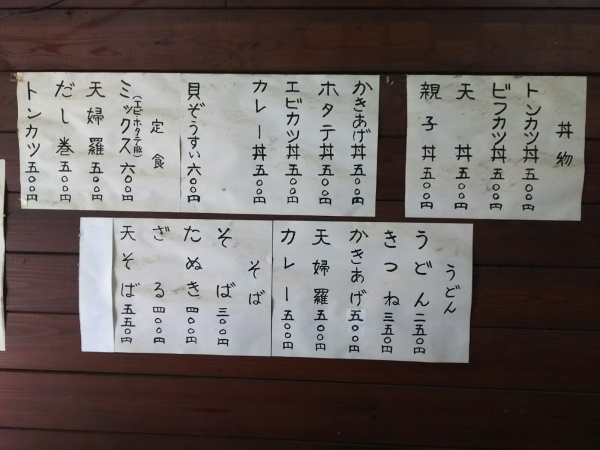 丼物
トンカツ丼五〇〇円
ビフカツ丼五〇〇円
天丼五〇〇円
親子丼五〇〇円
かきあげ丼五〇〇円
ホタテ丼五〇〇円
エビカツ丼五〇〇円
カレー丼五〇〇円
貝ぞうすい六〇〇円
定食
ミックス六〇〇円
天婦羅五〇〇円
だし巻五〇〇円
トンカツ五〇〇円
うどん
うどん二五〇円
きつね三五〇円
かきあげ五〇〇円
天婦羅五〇〇円
カレー五〇〇円
そば
そば三〇〇円
たぬき四〇〇円
ざる四〇〇円
天そば五五〇円